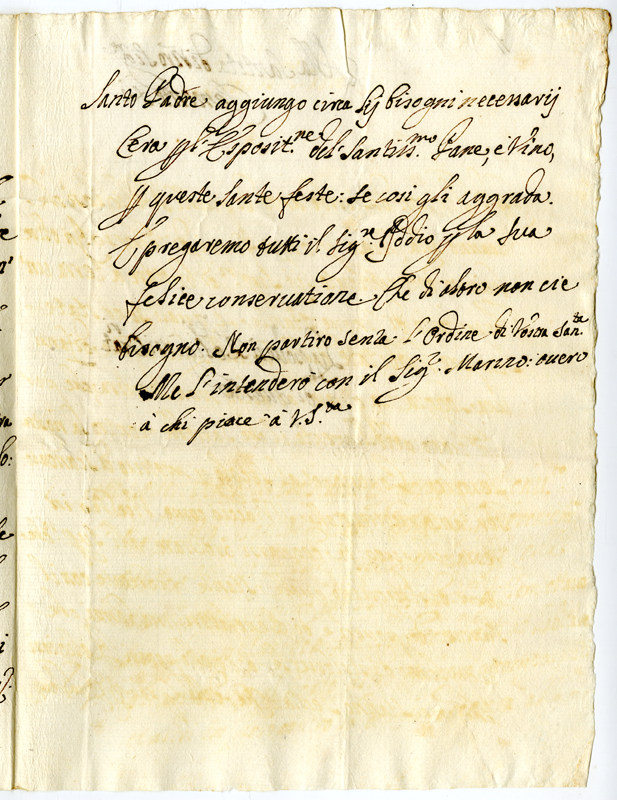 Santo Padre aggiungo circa li bisogni necessarij
Cera p l'Esposit.ne del Santiss.mo Pane, è Vino,
p queste sante feste: se così gli aggrada.
E pregaremo tutti il Sig.r Iddio p la sua
felice conservatione. Che di altro non cie
bisogno. Non partirò senza l'Ordine di Vostra San.ta
Me l'intenderò con il Sig.r Marino: overo
à chi piace à V.S.tà